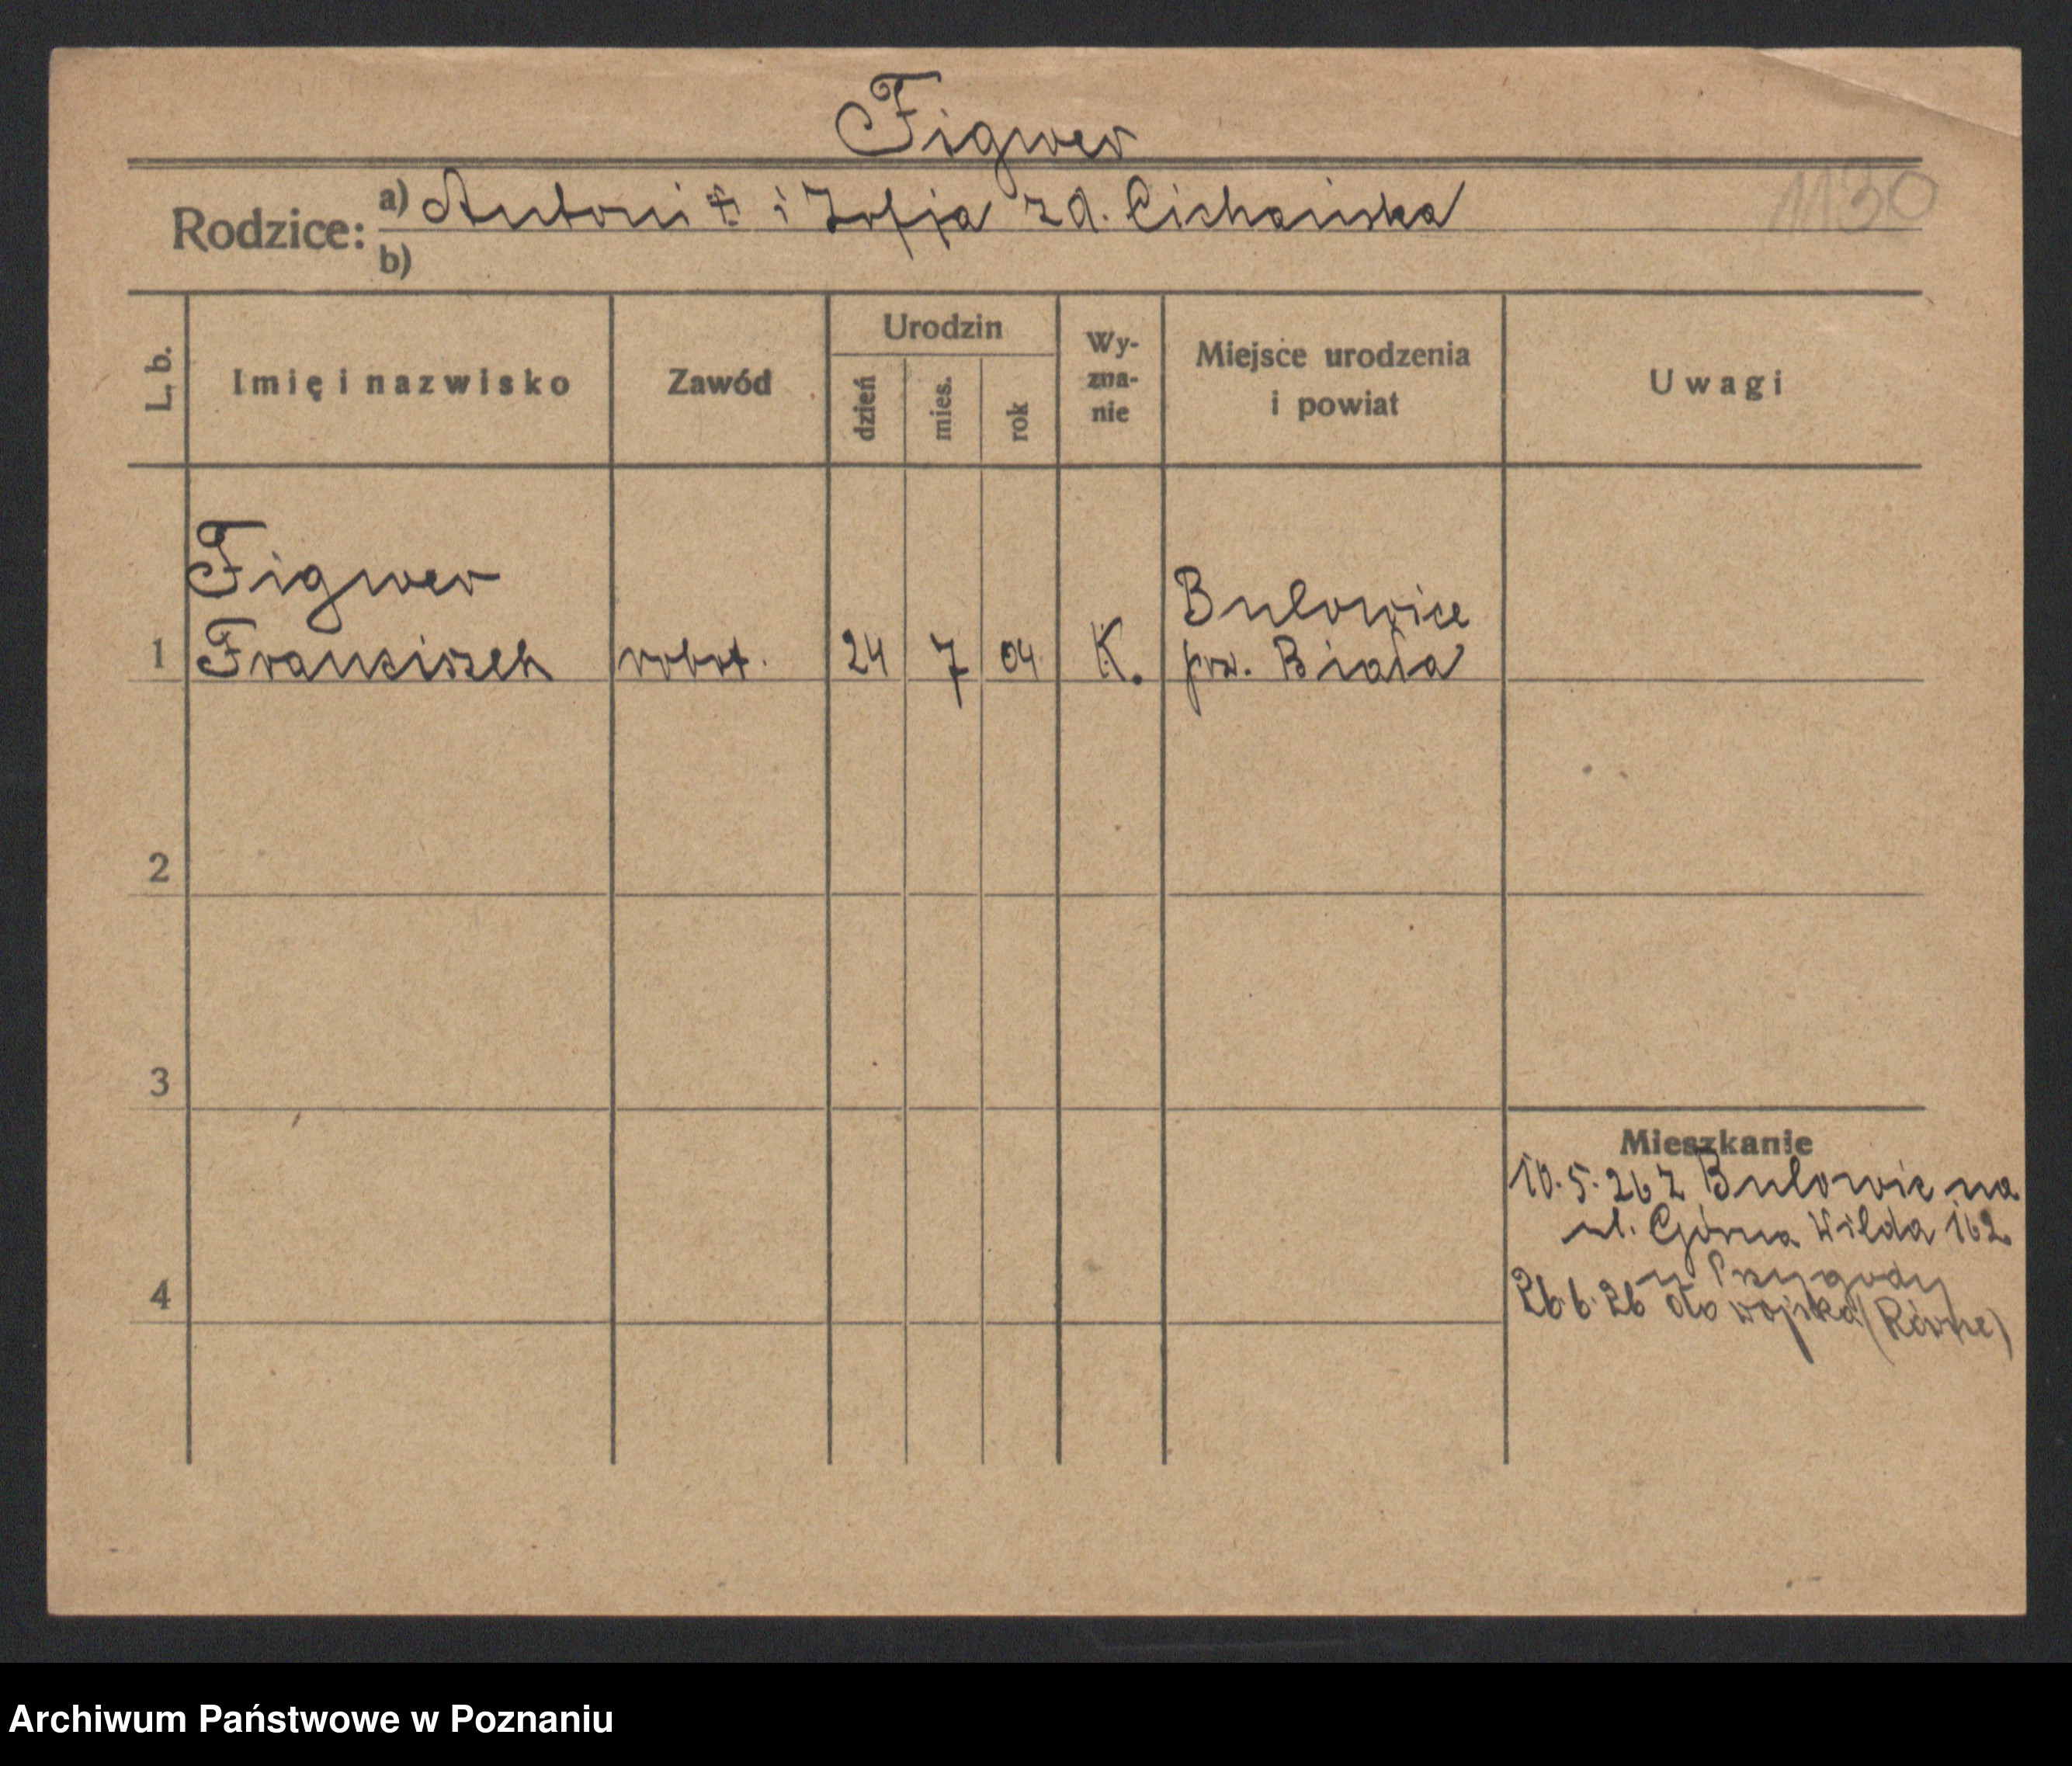 Figwer
Rodzice: a) Antoni ‡ i Zofja zd. Cichańska
1130
b)
L. b. Imię i nazwisko Zawód Urodzin dzień mies. rok Wy-zna-nie Miejsce urodzenia i powiat Uwagi
Figwer
Bulowice
1 Franciszek robot. 24 7 04 K. pow. Biała
2
3
Mieszkanie
10.5.26 z Bulowic na
ul. Górna Wilda 162
u Przygody
4
26.6.26 do wojska (Równe)
Archiwum Państwowe w Poznaniu